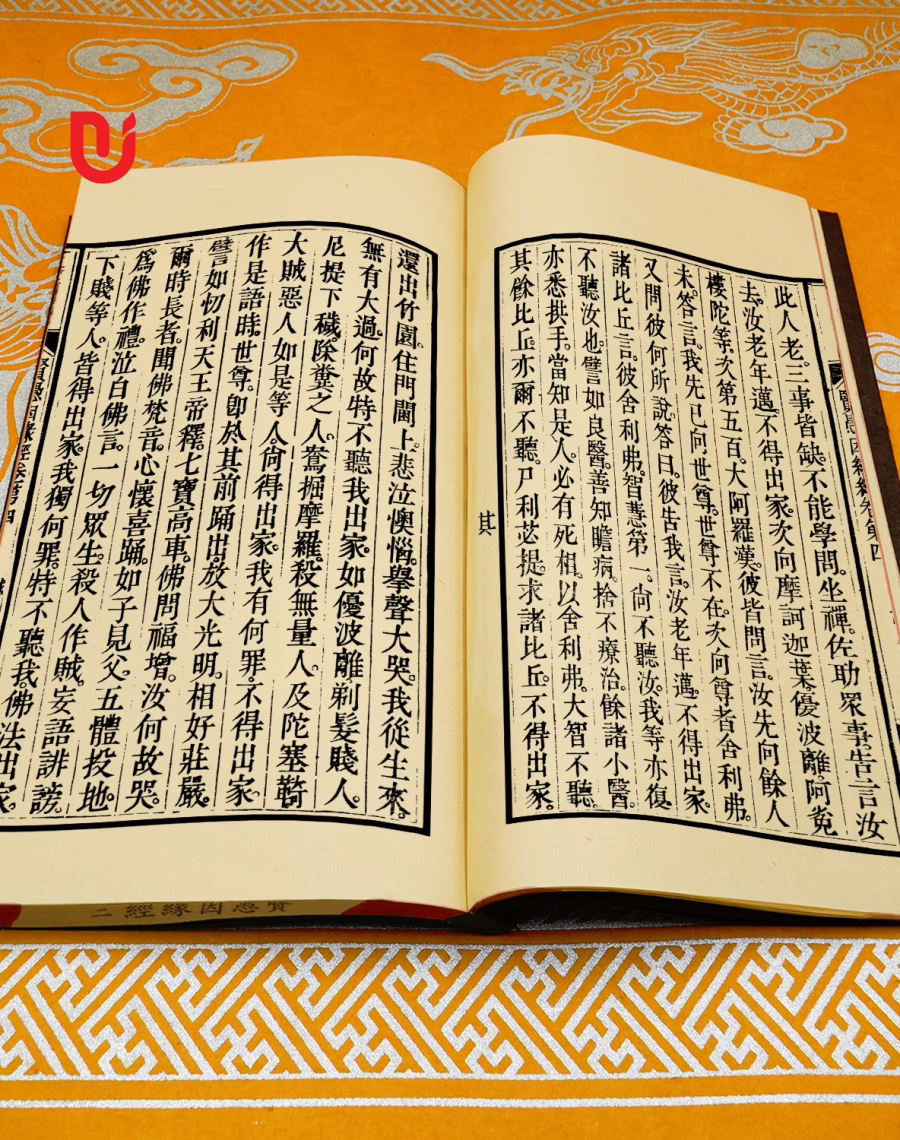 此人老。三事皆缺。不能學問。坐禪。佐助眾事。告言汝
去。汝老年邁。不得出家。次向摩訶迦葉。優波離。阿㝹
樓陀等。次第五百。大阿羅漢。彼皆問言。汝先向餘人
未。答言。我先已向世尊。世尊不在。次向尊者舍利弗。
又問彼何所說。答曰。彼告我言。汝老年邁。不得出家
諸比丘言。彼舍利弗。智慧第一。尚不聽汝。我等亦復
不聽汝也。譬如良醫。善知瞻病。捨不療治。餘諸小醫。
亦悉拱手。當知是人。必有死相。以舍利弗。大智不聽。
其餘比丘。亦爾不聽。尸利苾提。求諸比丘。不得出家。
其
還出竹園。住門閫上。悲泣懊惱。舉聲大哭。我從生來。
無有大過。何故特不聽我出家。如優波離剃髮賤人。
尼提下穢。除糞之人。鴦掘摩羅殺無量人。及陀塞鞽
大賊惡人。如是等人。尚得出家。我有何罪。不得出家。
作是語時。世尊。卽於其前踊出。放大光明。相好莊嚴。
譬如忉利天王帝釋。七寶高車。佛問福增。汝何故哭。
爾時長者。聞佛梵音。心懷喜踊。如子見父。五體投地。
為佛作禮。泣白佛言。一切眾生。殺人作賊。妄語誹謗。
下賤等人。皆得出家。我獨何罪。特不聽我。佛法出家。
賢愚因緣經二